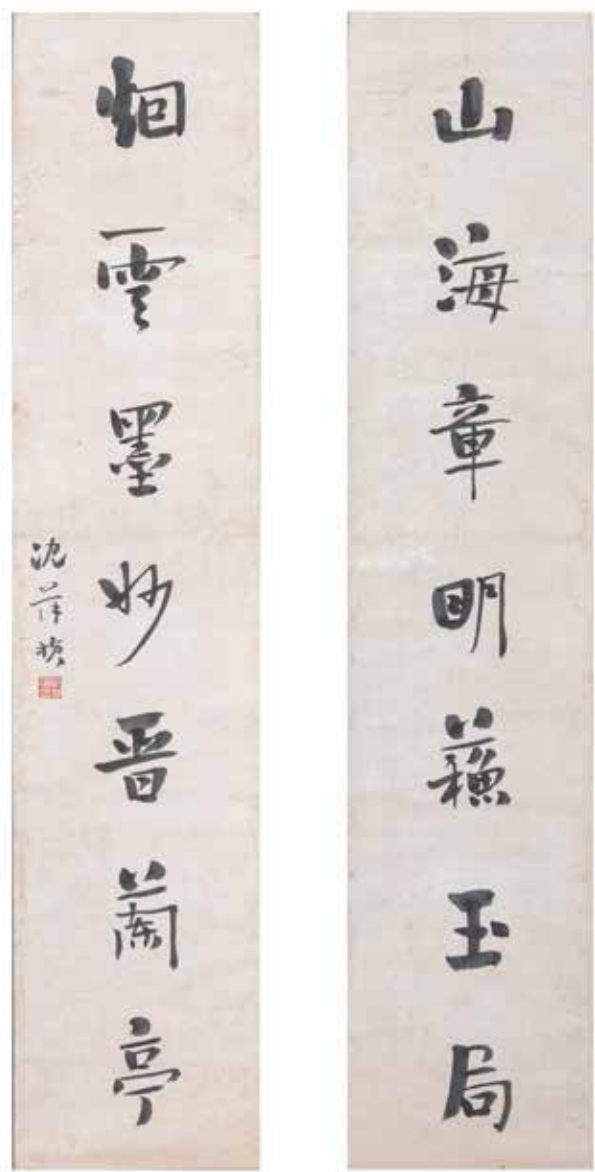 山海章明蘓玉局
烟雲墨妙晋蘭亭
沈葆楨